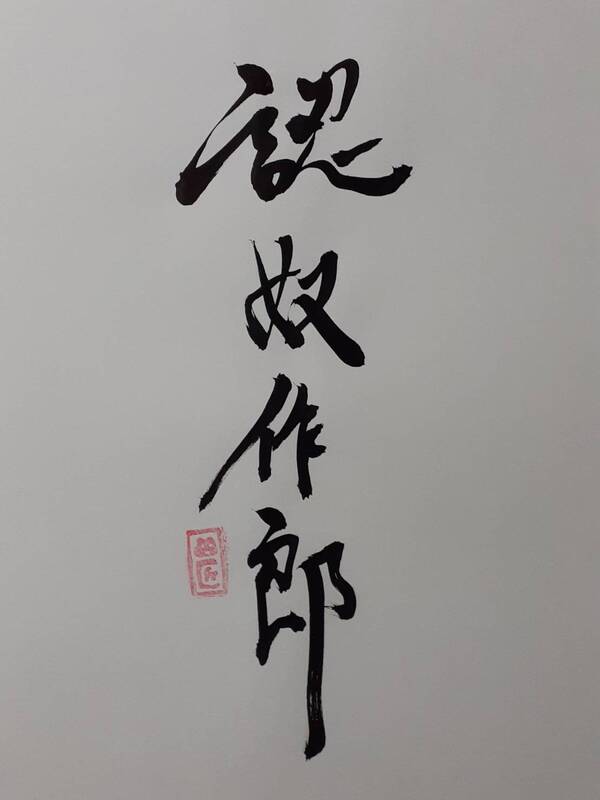 認奴作郎